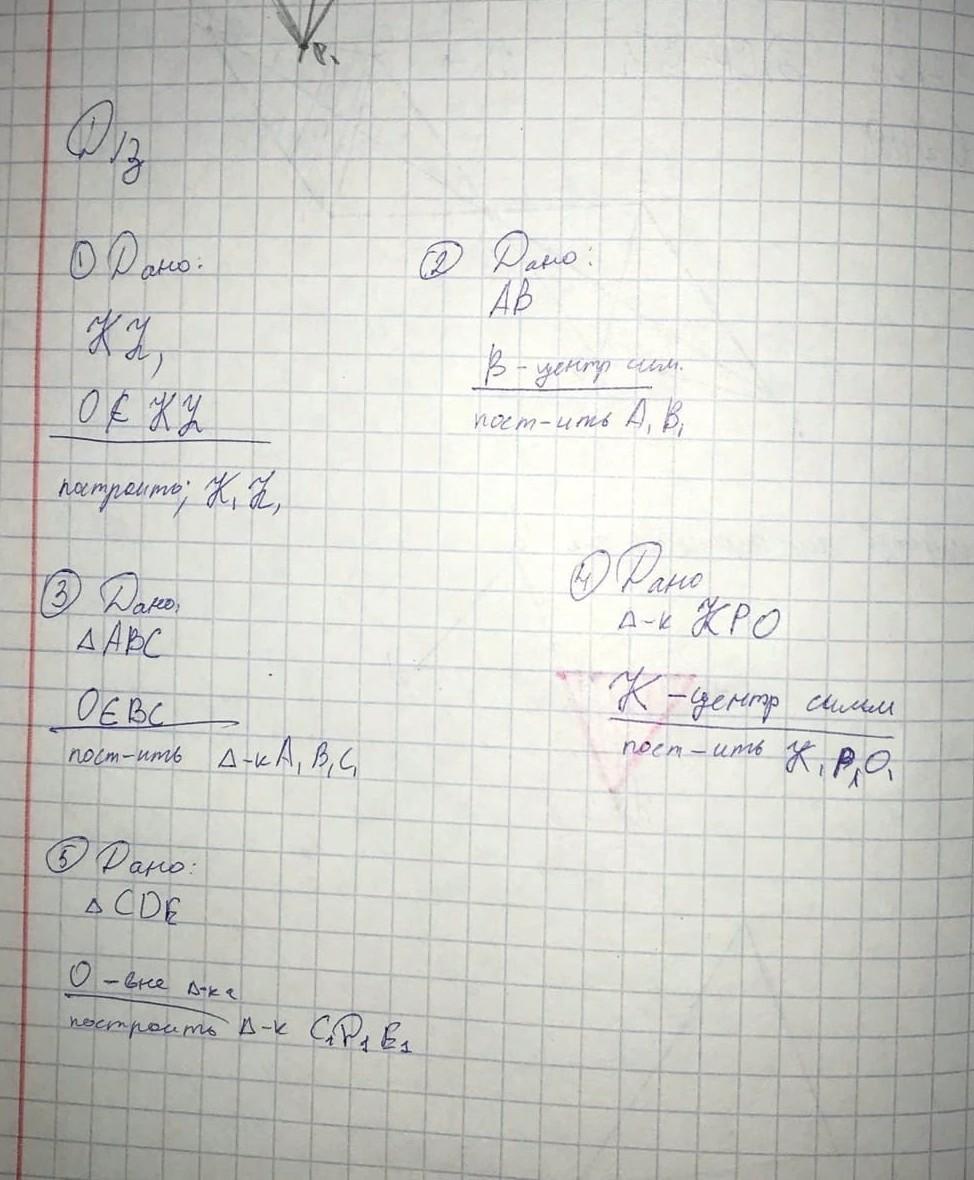 P₁
Д/з
① Дано:
KZ,
O ∉ KZ
построить; K₁Z₁
② Дано:
AB
B - центр сим.
пост-ить A₁B₁
③ Дано:
△ABC
O∈BC
пост-ить △-к A₁B₁C₁
④ Дано
△-к KPO
K - центр симм
пост-ить K₁P₁O₁
⑤ Дано:
△CDE
O - вне △-ка
построить △-к C₁D₁E₁